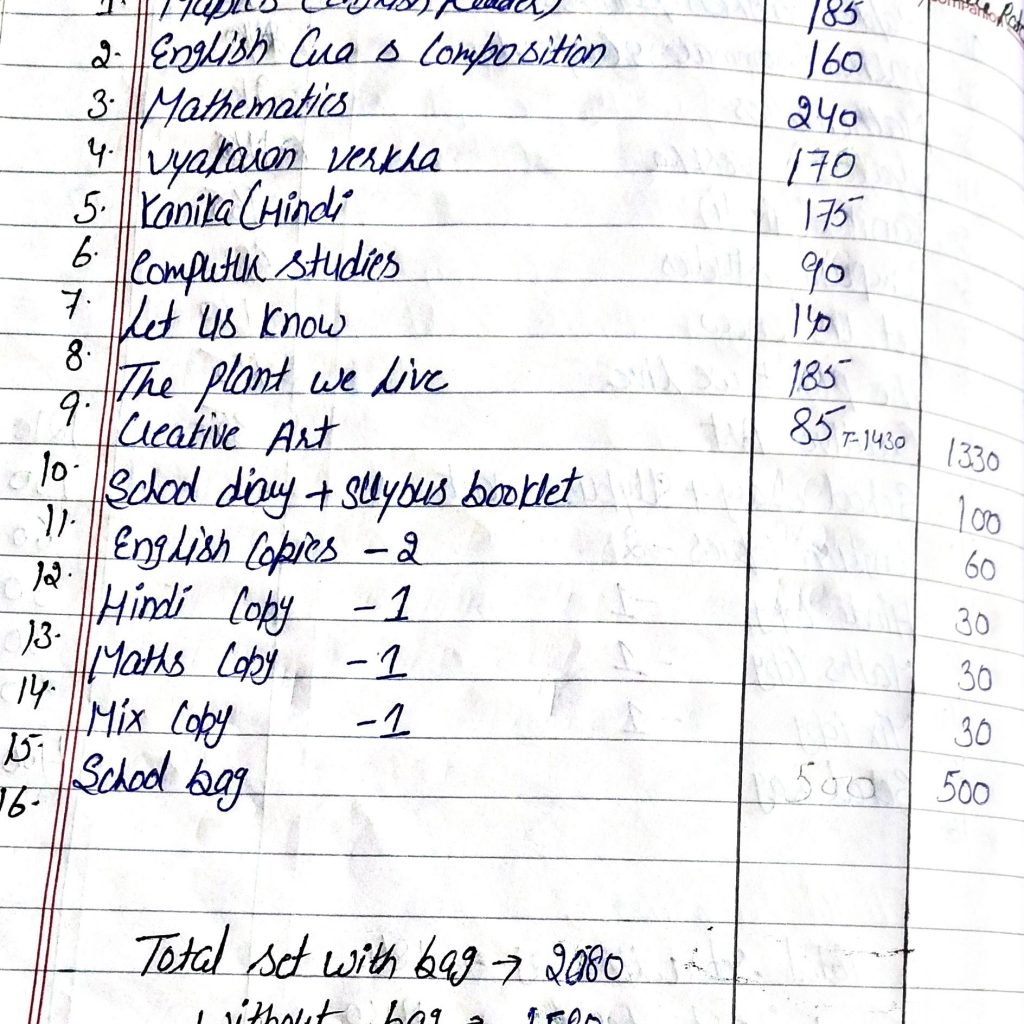 1. (English Reader) 185
2. English Gra & Composition 160
3. Mathematics 240
4. Vyakaran verkha 170
5. Kanika (Hindi 175
6. Computer studies 90
7. Let us Know 140
8. The plant we Live 185
9. Creative Art 85 T-1430 1330
10. School diary + sllybus booklet 100
11. English Copies - 2 60
12. Hindi Copy - 1 30
13. Maths Copy - 1 30
14. Mix Copy - 1 30
15. School bag 500 500
16.
Total set with bag → 2080
without bag → 1580